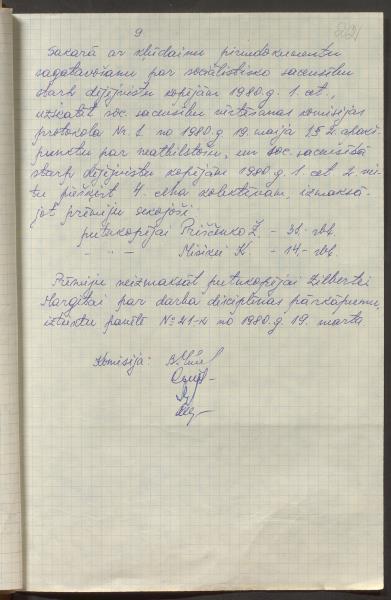 9
Sakarā ar kļūdainu pirmdokumentu
sagatavošanu par sociālistisko sacensību
starp dējējvistu kopējām 1980.g. 1. cet.,
uzskatīt soc. sacensību vērtēšanas komisijas
protokola Nr. 1 no 1980.g. 19. maija 1.5.2. apakš-
punktu par neatbilstošu, un soc. sacensībā
starp dējējvistu kopējām 1980.g. 1. cet. 2. vie-
tu piešķirt 4. ceha kolektīvam, izmaksā-
jot prēmiju sekojoši:
putnkopējai Priščenko Ž. - 31.- rbļ.
- " - Misikei K. - 14.- rbļ.
Prēmiju neizmaksāt putnkopējai Zilbertei
Margitai par darba disciplīnas pārkāpumu,
izteiktu pavēlē Nº 21-k no 1980.g. 19. marta
Komisija: